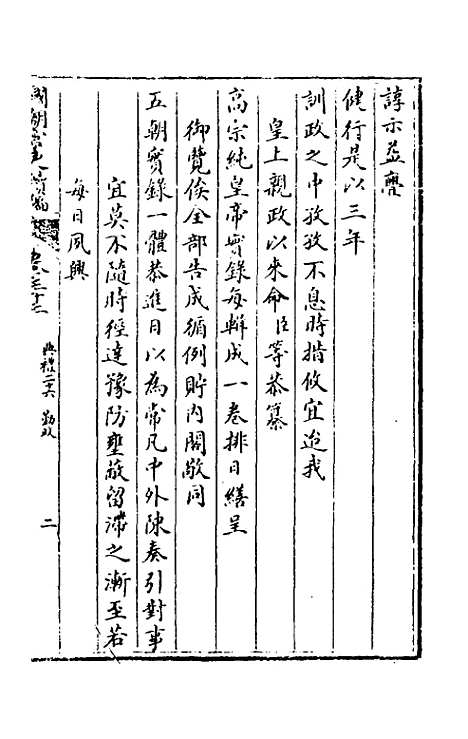 諄示益亹
健行是以三年
訓政之中孜孜不息時措攸宜迨我
皇上親政以來命臣等恭纂
高宗純皇帝實錄每輯成一卷排日繕呈
御覽俟全部告成循例貯內閣敬同
五朝實錄一體恭進日以為常凡中外陳奏引對事
宜莫不隨時經達豫防壅蔽留滯之漸至若
每日夙興
國朝宮史續編 卷之三十二 典禮二十六 勤政 二